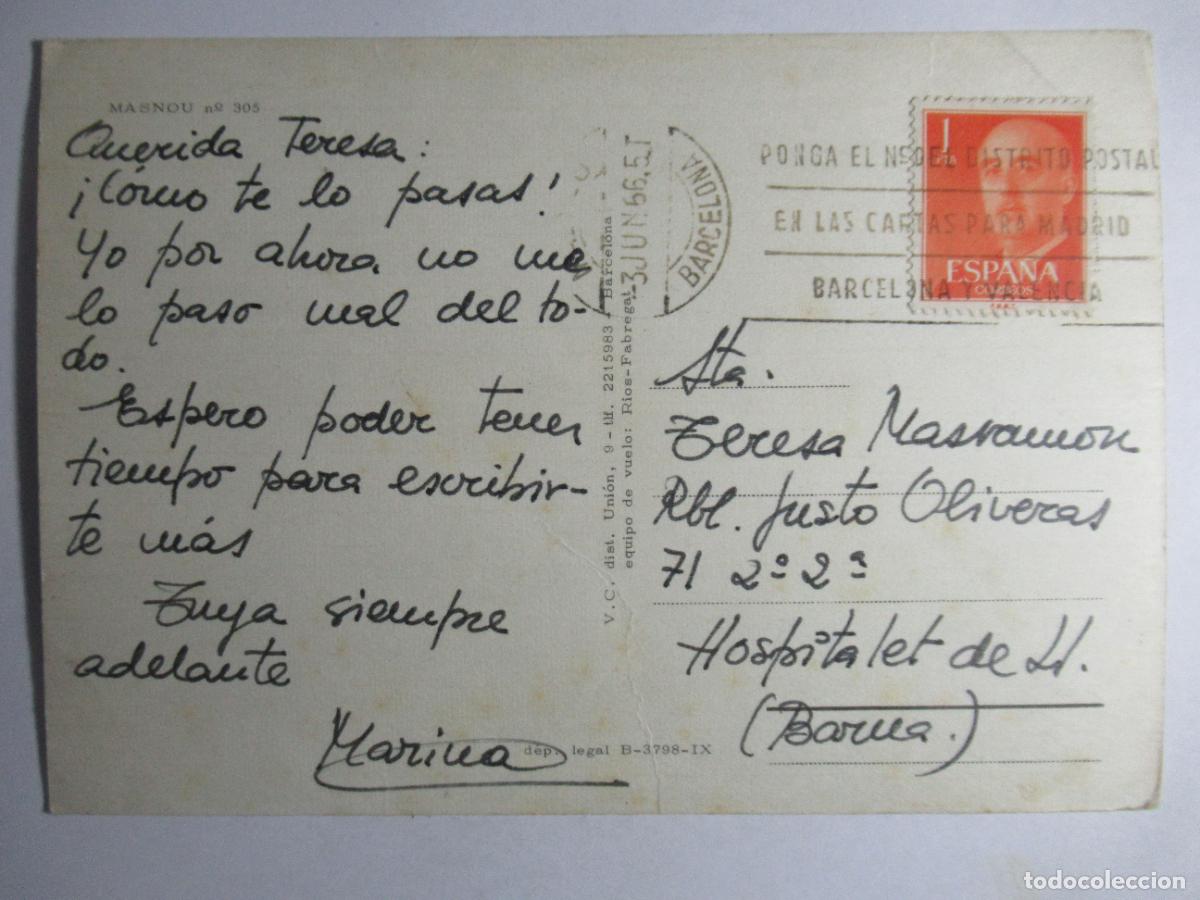 MASNOU nº 305
Querida Teresa:
¡Cómo te lo pasas!
Yo por ahora no me
lo paso mal del to-
do.
Espero poder tener
tiempo para escribir-
te más
Tuya siempre
adelante
Marina
dép. legal B-3798-IX
V.C. dist. Unión, 9 - tlf. 2215983 - Barcelona -
equipo de vuelo: Rios-Fabregat
-3 JUN 66.5T
BARCELONA
PONGA EL Nº DEL DISTRITO POSTAL
EN LAS CARTAS PARA MADRID
BARCELONA Y VALENCIA
1 PTA
ESPAÑA
CORREOS
Sta.
Teresa Massramon
Rbl. Justo Oliveras
71 2º 2ª
Hospitalet de Ll.
(Barna.)
todocoleccion